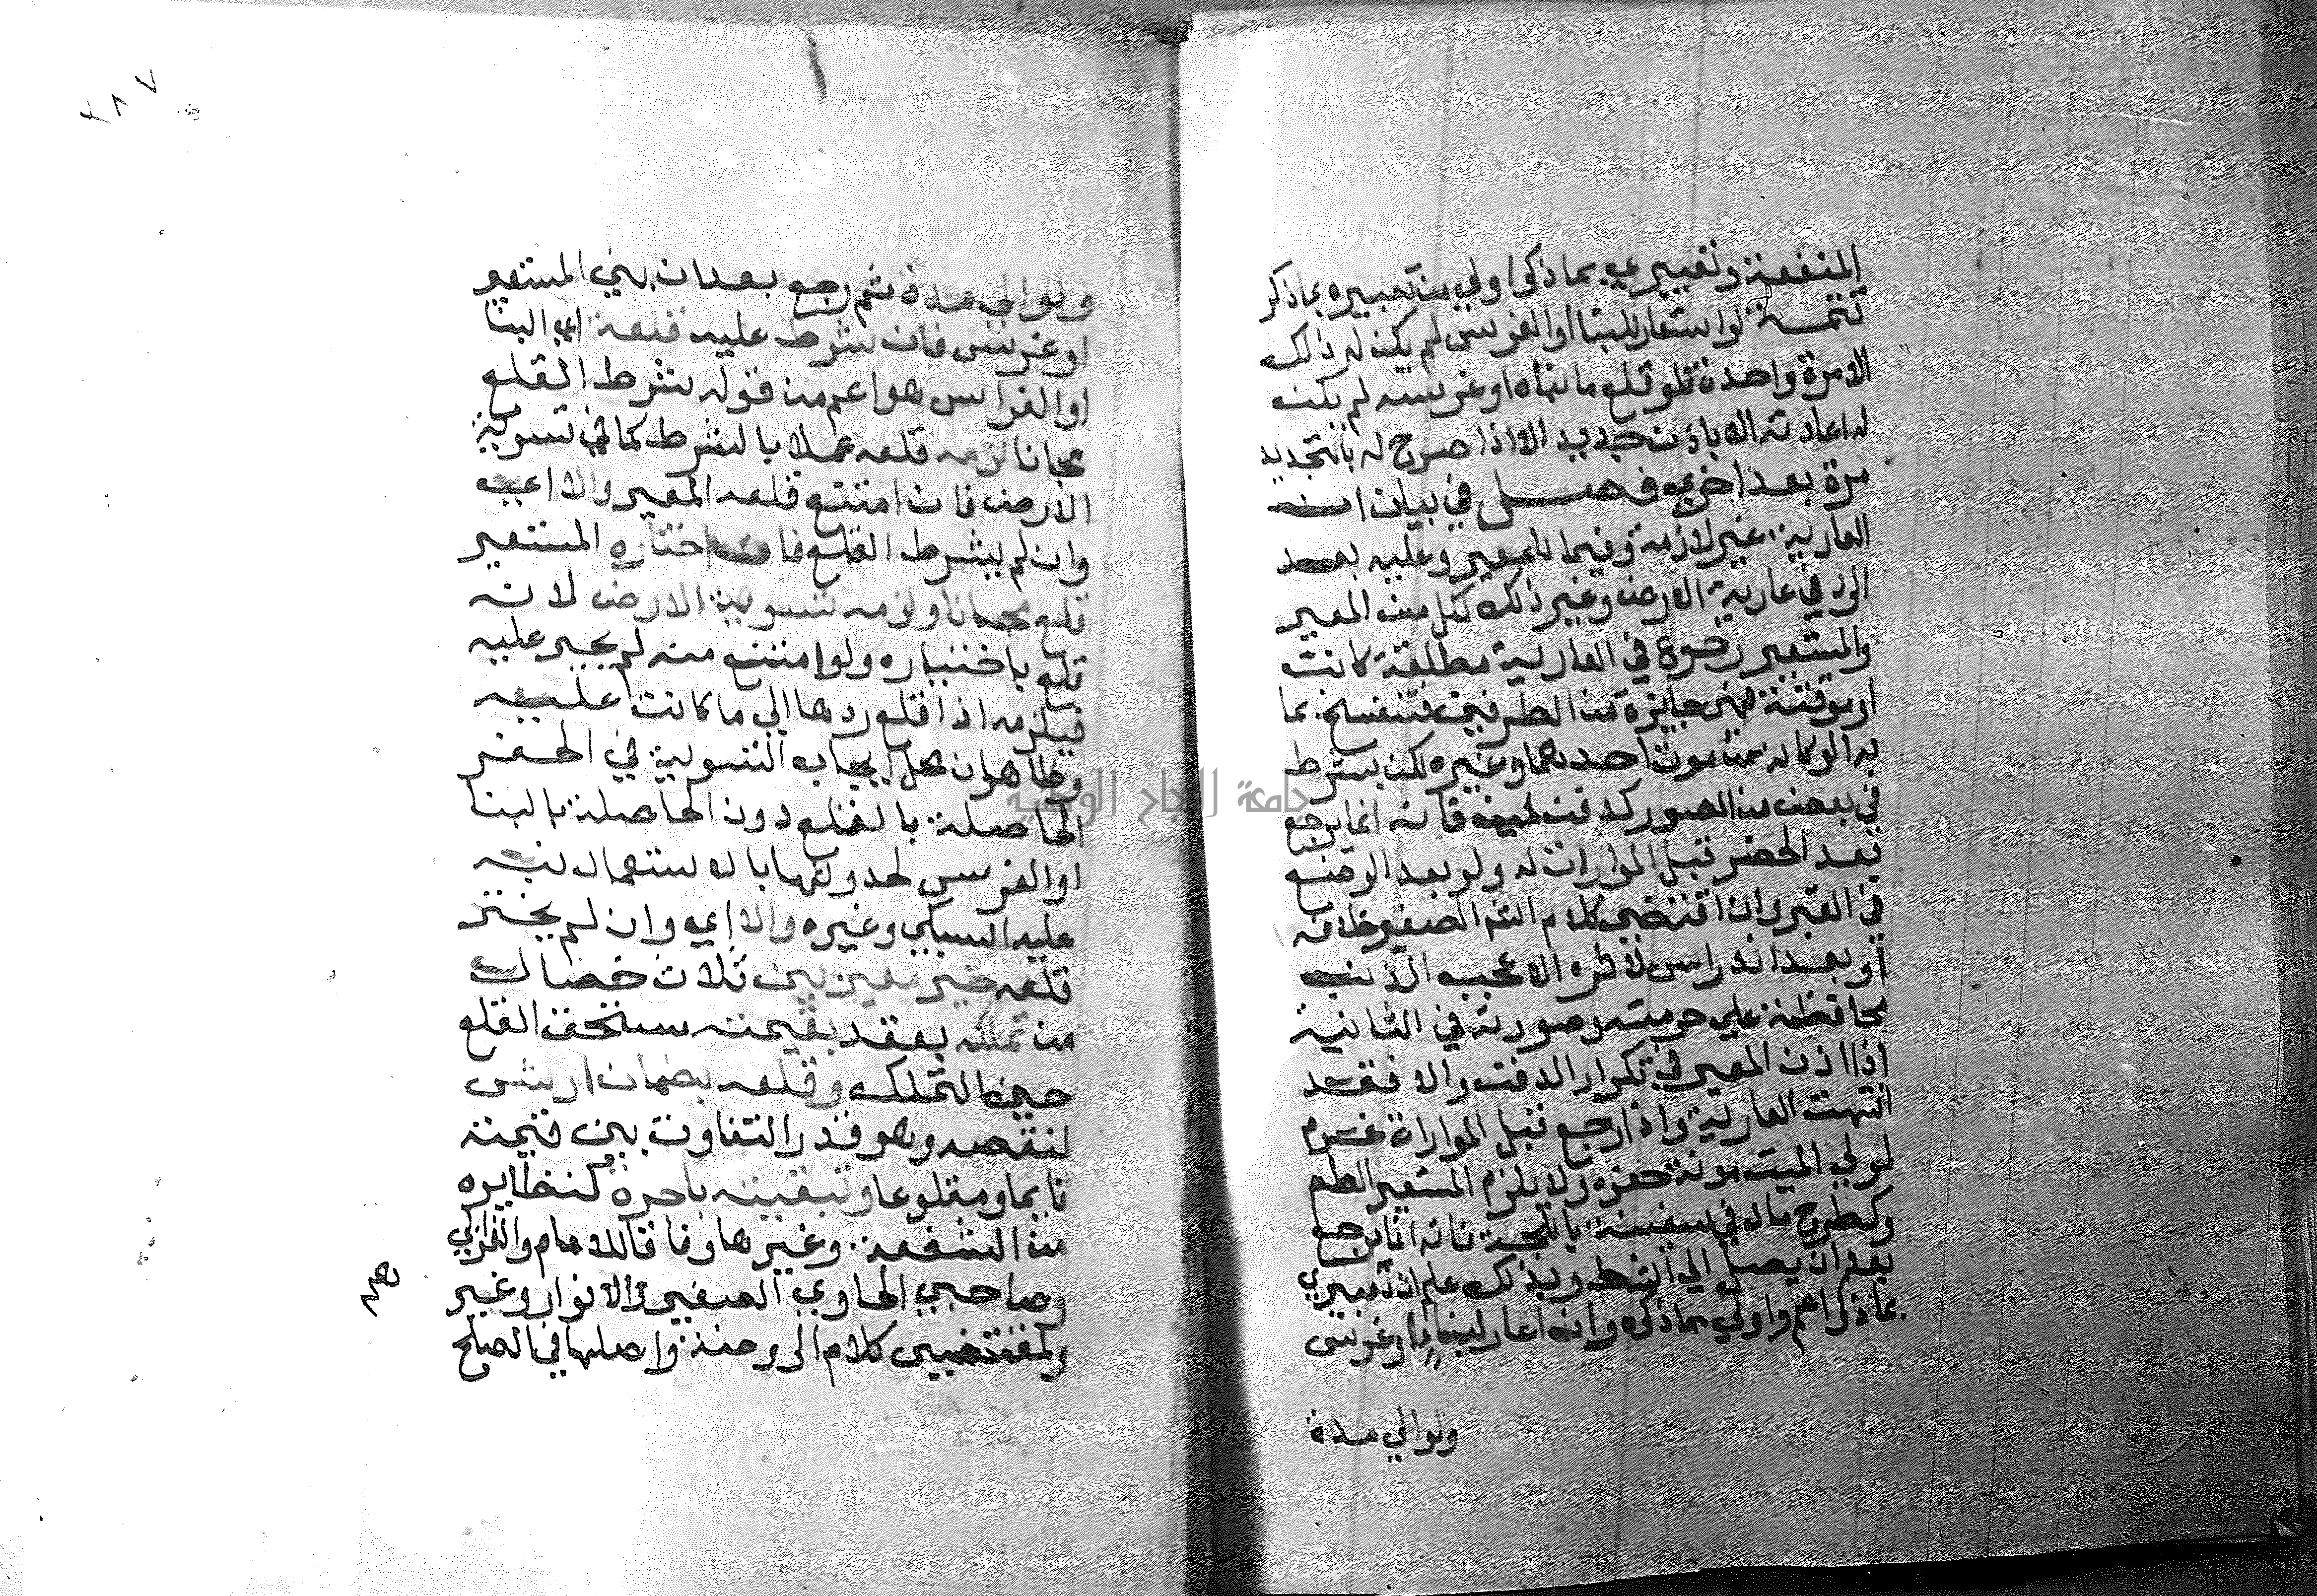 المنفعة وتعبيري بما ذكر اولي من تعبيره بما ذكر
تتمة لو استعار للبنا او الغرس لم يكن له ذالك
الا مرة واحدة فلو قلع ما بناه او غرسه لم يكن
له اعادته الا باذن جديد الا اذا صرح له بالتجديد
مرة بعد اخري فصل في بيان ان
العارية غير لازمة وفيما للمعير وعليه بعد
الرد في عارية الارض وغير ذلك لكل من المعير
والمستعير رجوع في العارية مطلقة كانت
او موقتة فهي جايزة من الطرفين فتنفسخ بما
به الوكالة من موت احدهما وغيره لكن بشرط
في بعض من الصور كدفن لميت فانه انما يرجع
بعد الحفر قبل المواراة له ولو بعد الوضع
في القبر وان اقتضي كلام الشرح الصغير خلافه
او بعد اندراس لاثره الا عجب الذنب
محافظة علي حرمته وصورته في الثانية
اذا اذن المعير في تكرار الدفن والا فقد
انتهت العارية واذا رجع قبل المواراة غرم
لولي الميت مونة حفره ولا يلزم المستعير الطم
وكطرح مال في سفينة باللجة فانه انما يرجع
بعد ان يصل الي الشط وبذلك علم ان تعبيري
بما ذكر اعم واولي بما ذكره وان اعار لبنا او غرس
ولو الي مدة
٢٨٧
ولو الي مدة ثم رجع بعد ان بني المستعير
او غرس فان شرط عليه قلعه اي البنا
او الغراس هو اعم من قوله بشرط القلع
مجانا لزمه قلعه عملا بالشرط كما في تسوية
الارض فان امتنع قلعه المعير والا اي
وان لم يشرط القلع فان اختاره المستعير
قلع مجانا ولزمه تسوية الارض لانه
قلع باختياره ولو امتنع منه لم يجبر عليه
فيلزمه اذا قلع ردها الي ما كانت عليه
وظاهر ان محل ايجاب التسوية في الحفر
الحاصلة بالقلع دون الحاصلة بالبنا
او الغرس لحدوثها بالاستعمال نبه
عليه السبكي وغيره والا اي وان لم يختر
قلعه خير معير بين ثلاث خصال
من تملكه بعقد بقيمته مستحق القلع
حين التملك وقلعه بضمان ارش
لنقصه وهو قدر التفاوت بين قيمته
قايما ومقلوعا وتبقيته باجرة كنظايره
من الشفعة وغيرها وفاقا للامام والغزالي
وصاحبي الحاوي الصغير والانوار وغير
ولمقتضي كلام الروضة واصلها في الصلح
جامعة النجاح الوطنية